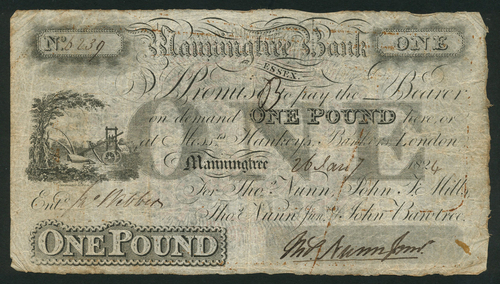 No. 5239 Manningtree Bank ONE
ESSEX
I Promise to pay the Bearer
on demand ONE POUND here, or
at Messrs. Hankeys, Bankers London
ONE
Manningtree 26 Jany 1824
Entd. Webber For Thos. Nunn, John Jc. Mills,
Thos. Nunn Junr. & John Bawtree.
ONE POUND Thos. Nunn Junr.